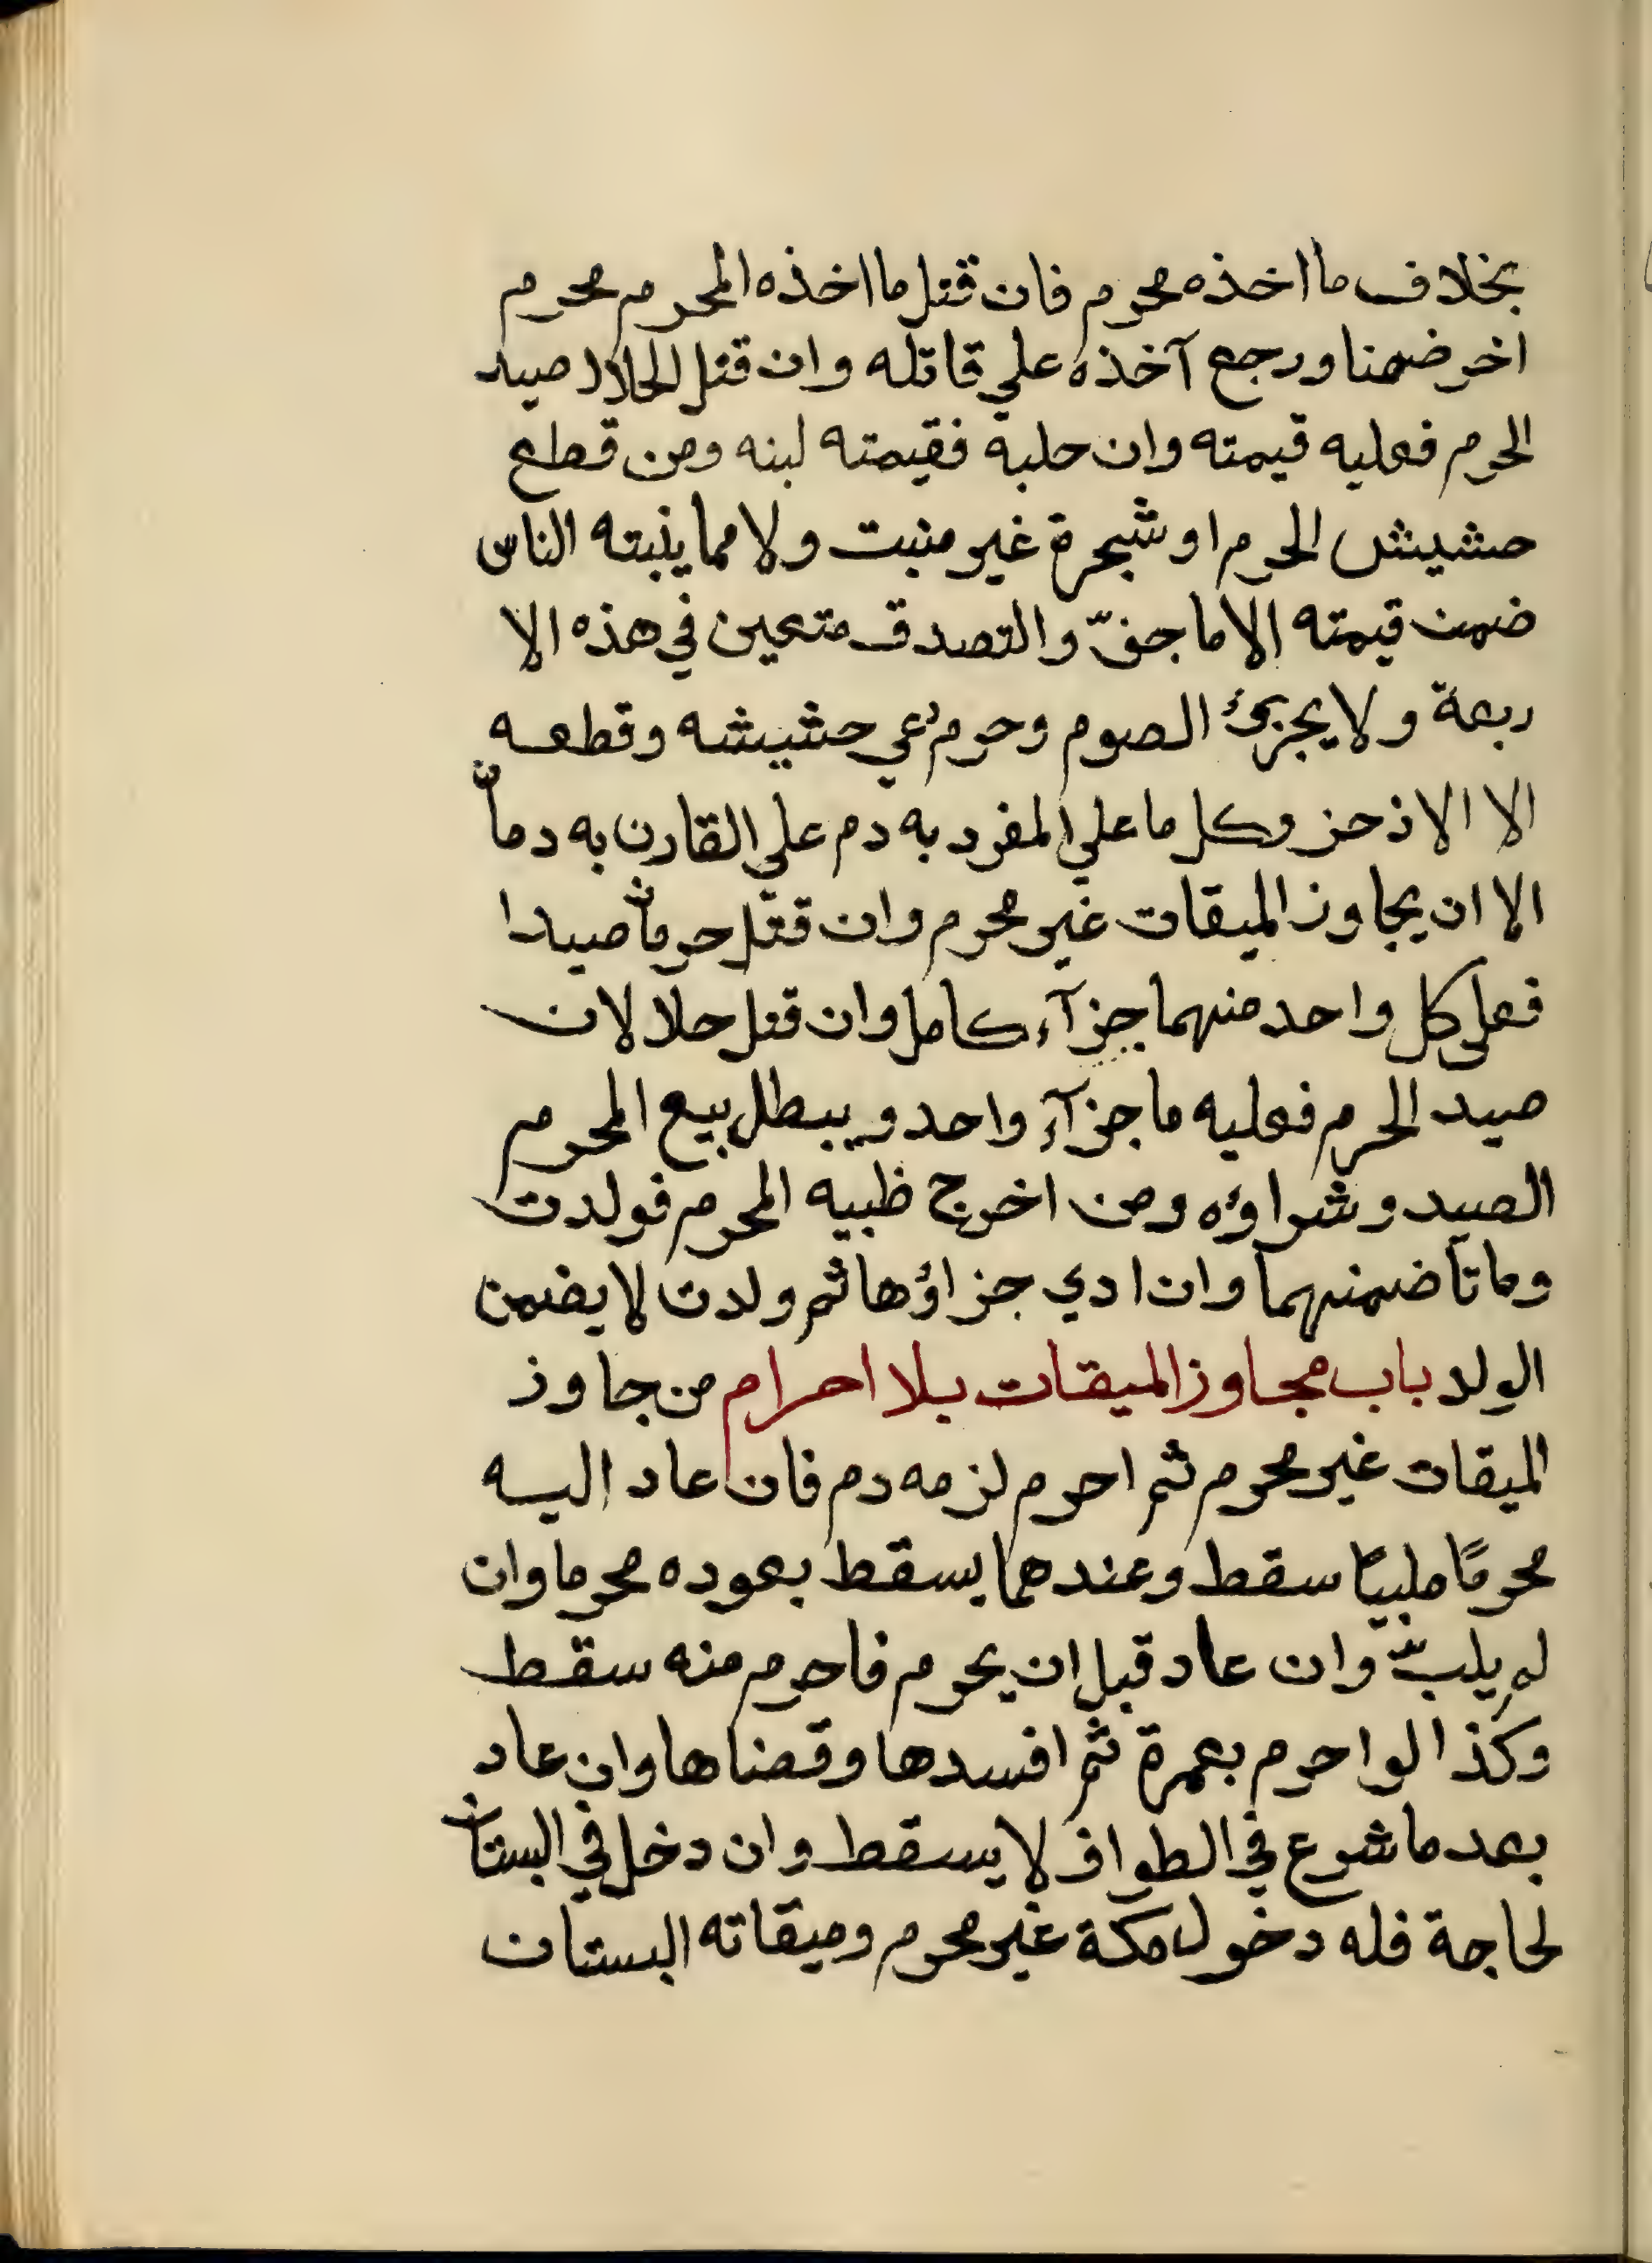 بخلاف ما اخذه محرم فان قتل ما اخذه المحرم محرم
اخر ضمنا ورجع آخذه علي قاتله وان قتل الحلال صيد
الحرم فعليه قيمته وان حلبه فقيمته لبنه ومن قطع
حشيش الحرم او شجرة غير منبت ولا مما ينبته الناس
ضمن قيمته الا ما جفّ والتصدق متعين في هذه الا
ربعة ولا يجزئ الصوم وحرم رعي حشيشه وقطعه
الا الاذخر وكل ما علي المفرد به دم علي القارن به دمان
الا ان يجاوز الميقات غير محرم وان قتل حرمان صيدا
فعلي كل واحد منهما جزآء كامل وان قتل حلالان
صيد الحرم فعليه ما جزآء واحد ويبطل بيع المحرم
الصيد وشراؤه ومن اخرج ظبيه المحرم فولدت
وماتا ضمنهما وان ادي جزاؤها ثم ولدت لا يضمن
الولد باب مجاوز الميقات بلا احرام من جاوز
الميقات غير محرم ثم احرم لزمه دم فان عاد اليه
محرمًا ملبيًا سقط وعندهما يسقط بعوده محرما وان
لم يلبّ وان عاد قبل ان يحرم فاحرم منه سقط
وكذا لو احرم بعمرة ثم افسدها وقضاها وان عاد
بعد ما شرع في الطواف لا يسقط وان دخل في البستان
لحاجة فله دخول مكة غير محرم وميقاته البستان